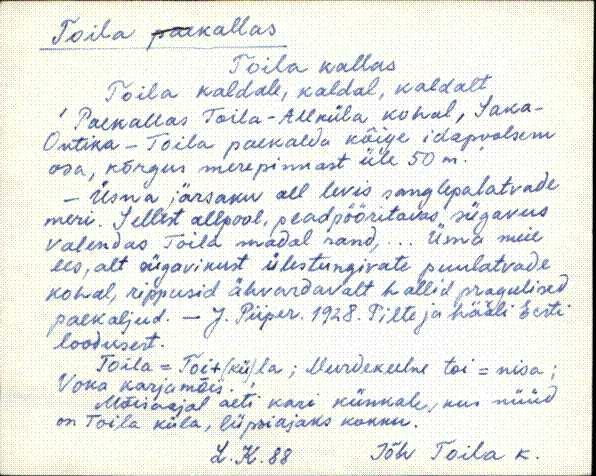 Toila paekallas
Toila kallas
Toila kaldale, kaldal, kaldalt
Paekallas Toila-Altküla kohal, Saka-
Ontika - Toila paekalda kõige idapoolsem
osa, kõrgus merepinnast üle 50 m.
- Üsna järsaku all levis sanglepalatvade
meri. Sellest allpool, peadpööritavas sügavus
valendas Toila madal rand, ... Üsna meie
ees, alt sügavikust ülestungivate puulatvade
kohal, rippusid ähvardavalt hallid pragulised
paekaljud. - J. Piiper. 1928. Pilte ja hääli Eesti
loodusest.
Toila = Toi + (kü)la; Murdekeelne toi = nisa;
Voka karjamõis.
Mõisaajal aeti kari künkale, kus nüüd
on Toila küla, lüpsiajaks kokku.
L.K. 88 Jõh Toila k.